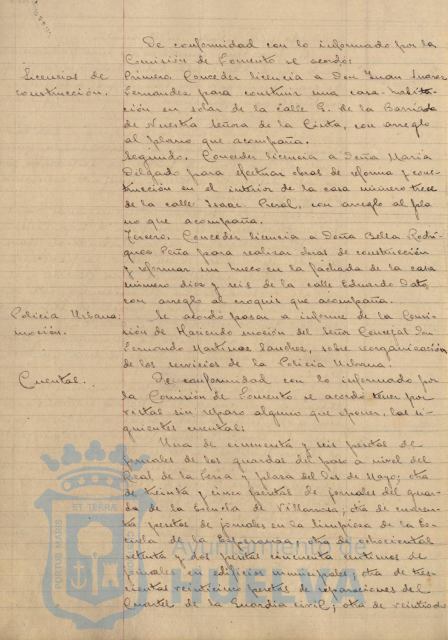 De conformidad con lo informado por la
Comisión de Fomento se acordó:
Licencias de
construcción.
Primero. Conceder licencia a Don Juan Suarez
Fernandez para construir una casa habita-
ción en solar de la calle G. de la Barriada
de Nuestra Señora de la Cinta, con arreglo
al plano que acompaña.
Segundo. Conceder licencia a Doña Maria
Delgado para efectuar obras de reforma y cons-
trucción en el interior de la casa número trece
de la calle Isaac Peral, con arreglo al pla
no que acompaña.
Tercero. Conceder licencia a Doña Bella Rodri-
guez Peña para realizar obras de construcción
y reformar un hueco en la fachada de la casa
número diez y seis de la calle Eduardo Dato,
con arreglo al croquis que acompaña.
Policia Urbana
moción.
Se acordó pasar a informe de la Comi-
sión de Hacienda moción del Señor Concejal Don
Fernando Martinez Sanchez, sobre reorganización
de los servicios de la Policia Urbana.
Cuentas.
De conformidad con lo informado por
la Comisión de Fomento se acordó tener por
vistas sin reparo alguno que oponer, las si-
guientes cuentas:
Una de cincuenta y seis pesetas de
jornales de los guardas del paso a nivel del
Real de la Feria y plaza del Dos de Mayo; otra
de treinta y cinco pesetas de jornales del guar
da de la Escuela de Villarrosa; otra de cuaren
ta pesetas de jornales en la limpieza de la Es-
cuela de la Esperanza; otra de ochocientas
setenta y dos pesetas cincuenta centimos de
jornales en edificios municipales; otra de tres-
cientas veinticinco pesetas de reparaciones del
Cuartel de la Guardia civil; otra de veintidos
PORTUS MARIS ET TERRAE
Ayuntamiento de
HUELVA